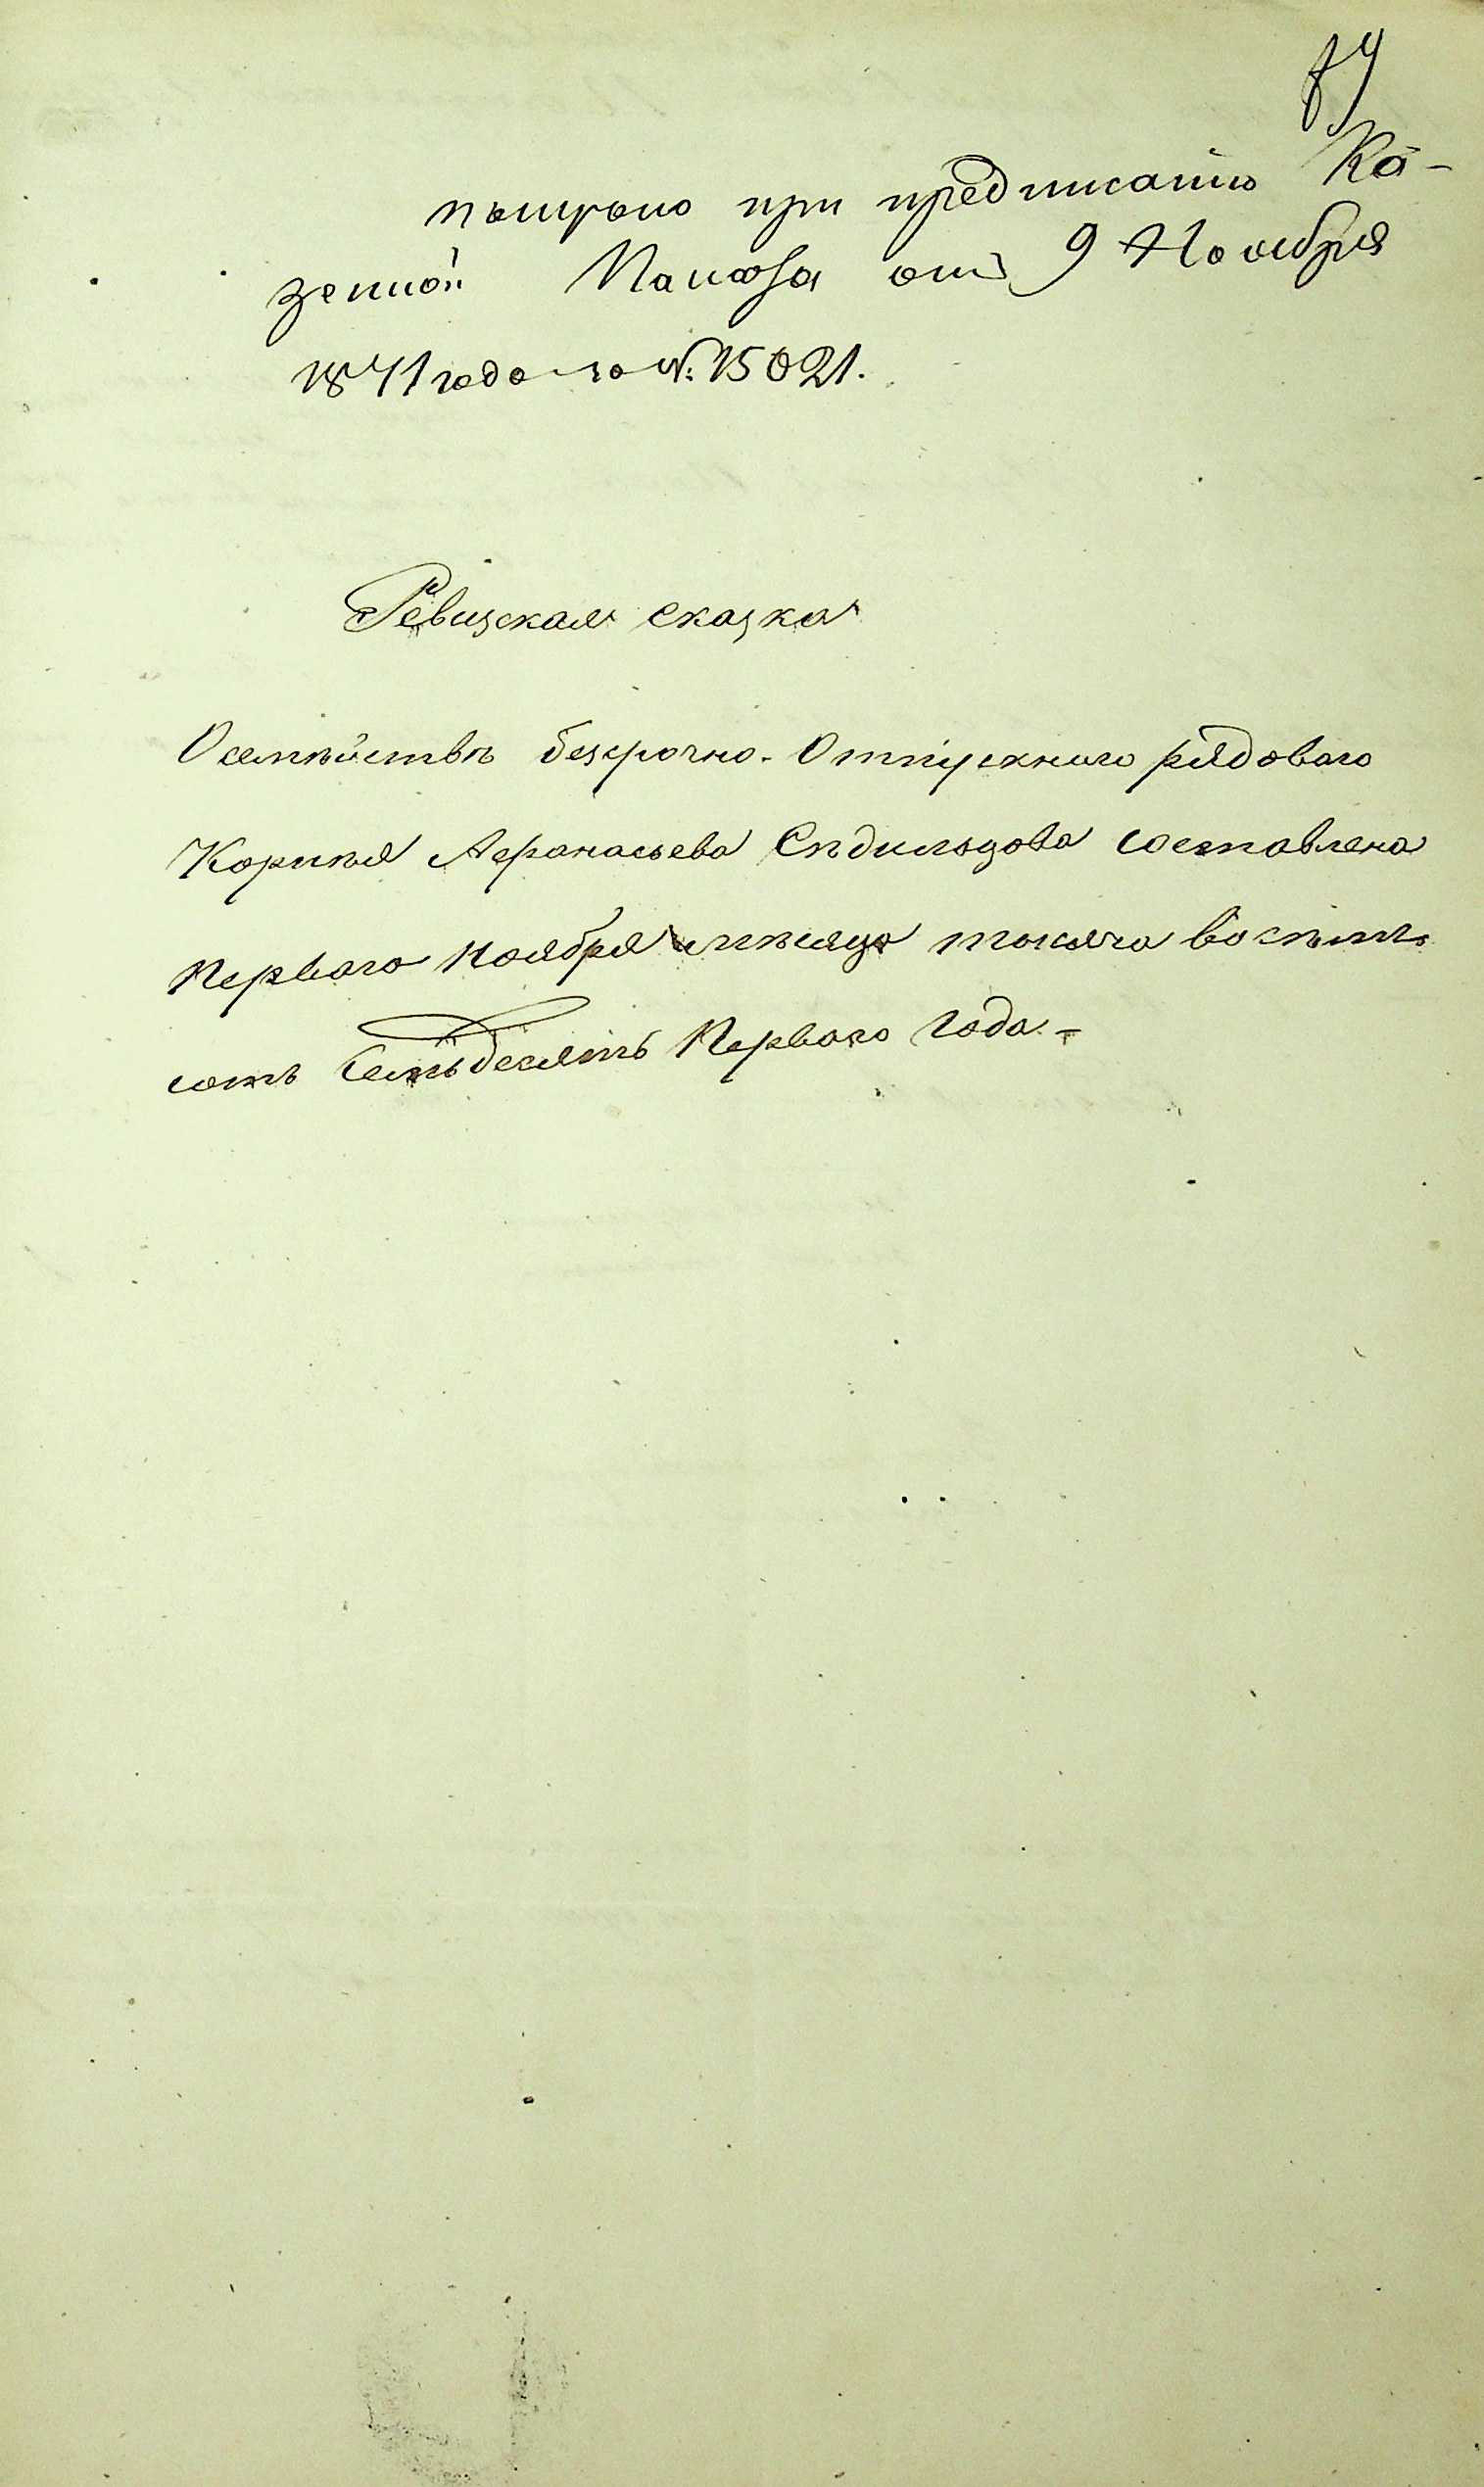 при предписанiю Ка-
зенной Палаты отъ 9 Ноября
1871 года за №. 15021.
Ревизская сказка
О семѣйствѣ безсрочно-Отпускнаго рядоваго
Корнѣя Афанасьева составлена
Перваго Ноября мѣсяца тысяча восѣмь
сотъ Семьдесятъ Перваго Года